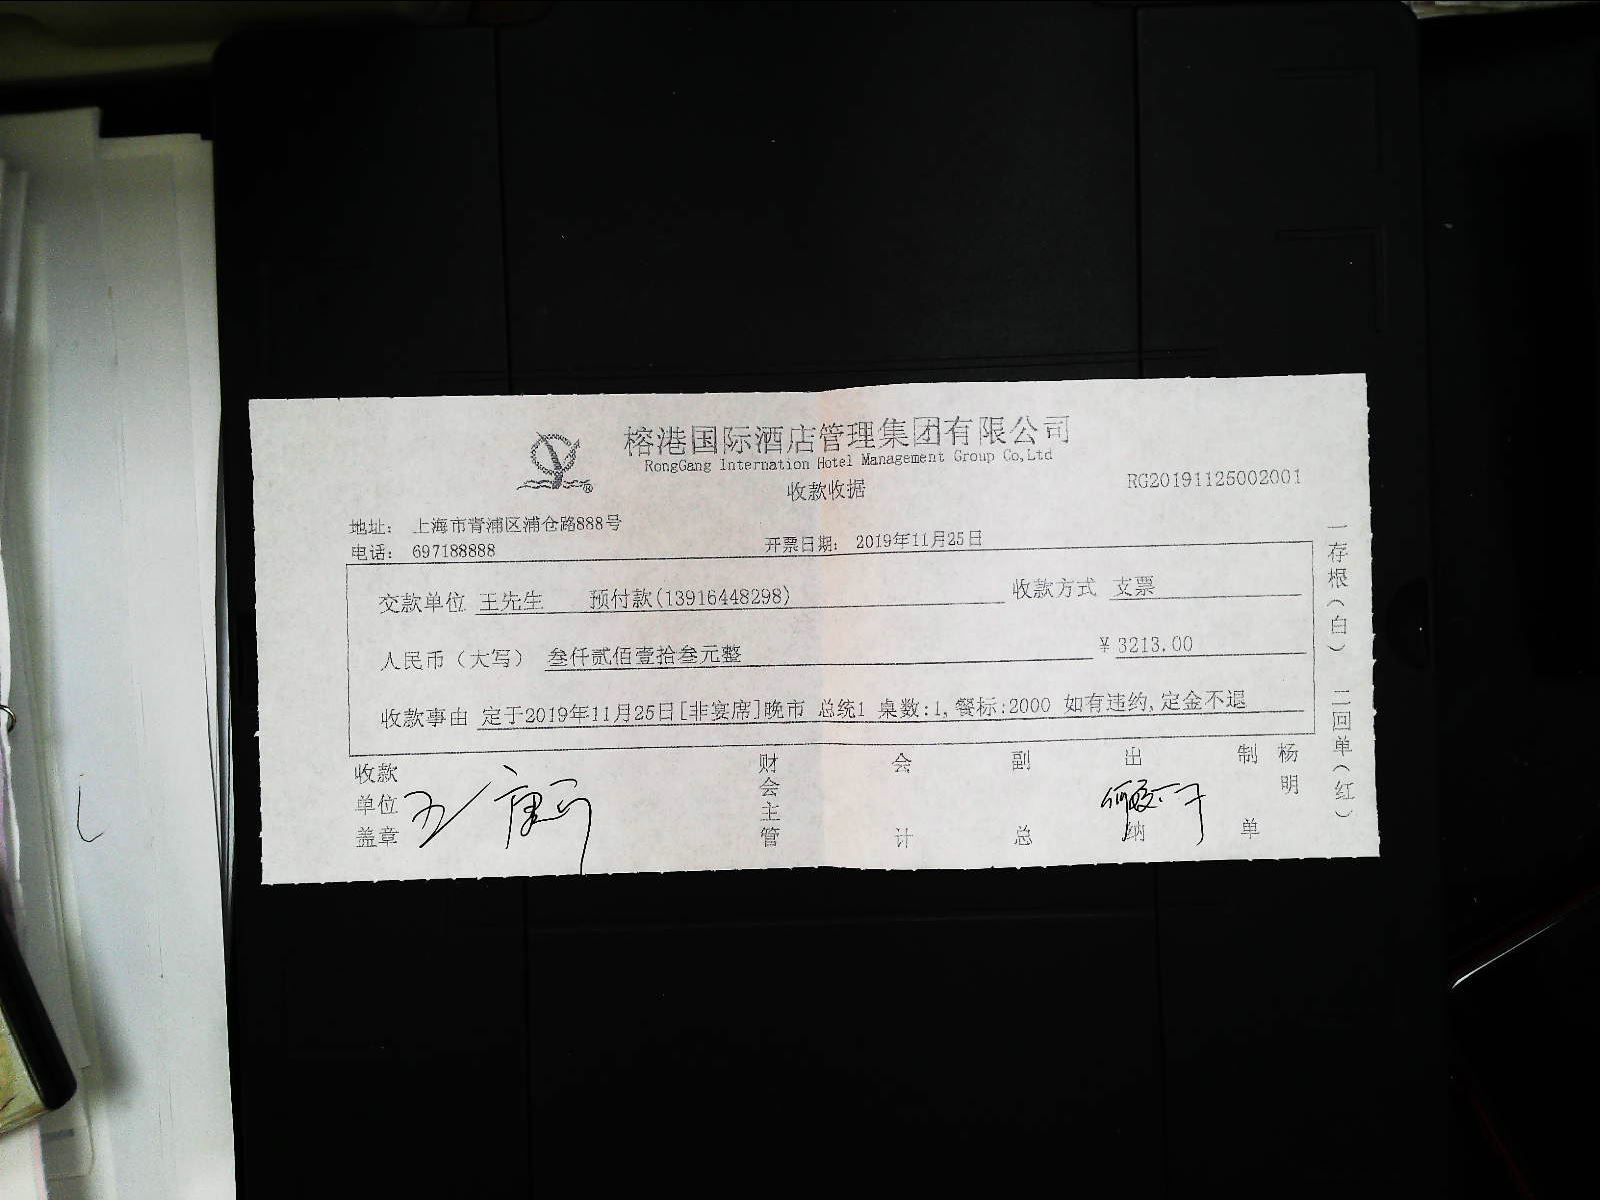 榕港国际酒店管理集团有限公司
RongGang Internation Hotel Management Group Co,Ltd
收款收据
RG20191125002001
地址： 上海市青浦区浦仓路888号
电话： 697188888
开票日期： 2019年11月25日
交款单位 王先生 预付款(13916448298) 收款方式 支票
人民币（大写） 叁仟贰佰壹拾叁元整 ￥3213.00
收款事由 定于2019年11月25日[非宴席]晚市 总统1 桌数:1,餐标:2000 如有违约,定金不退
收款单位盖章
财会主管
会计
副总
出纳
制单
杨明
一存根（白） 二回单（红）